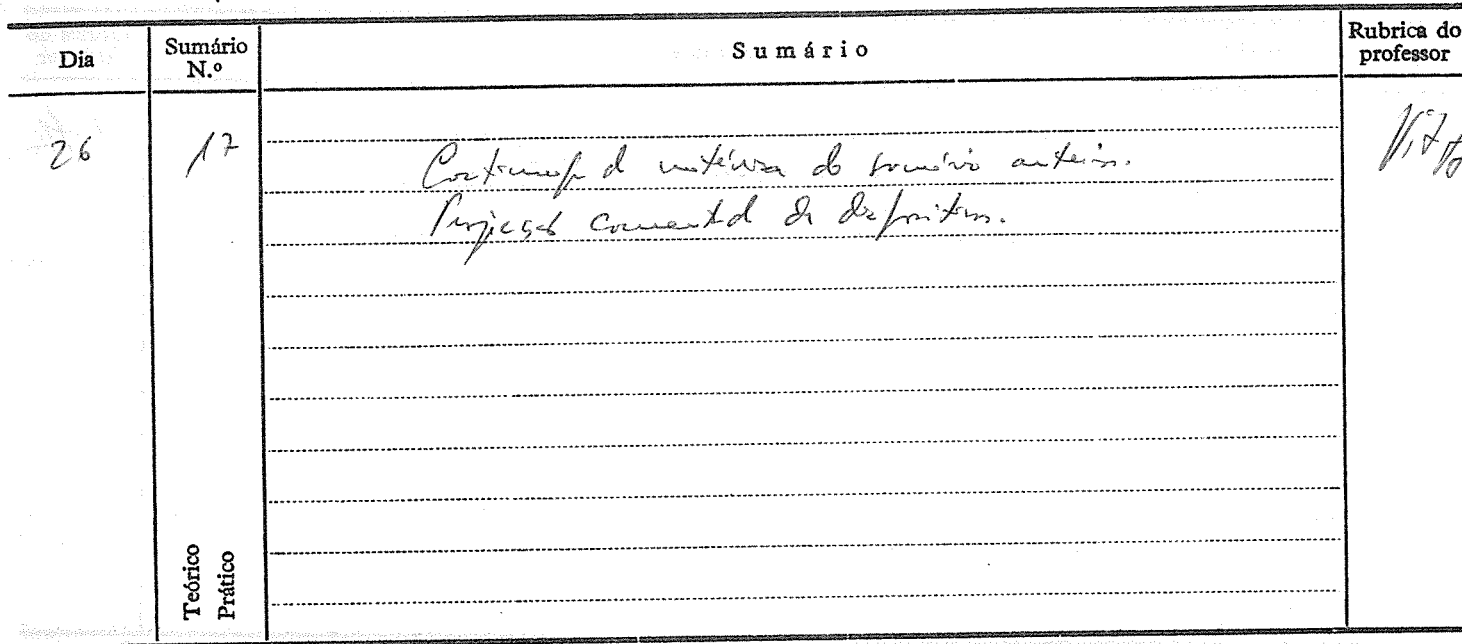 Dia
Sumário
N.º
Sumário
Rubrica do
professor
26
17
Continuação da matéria do sumário anterior.
Projecção comentada de diapositivos.
Teórico
Prático